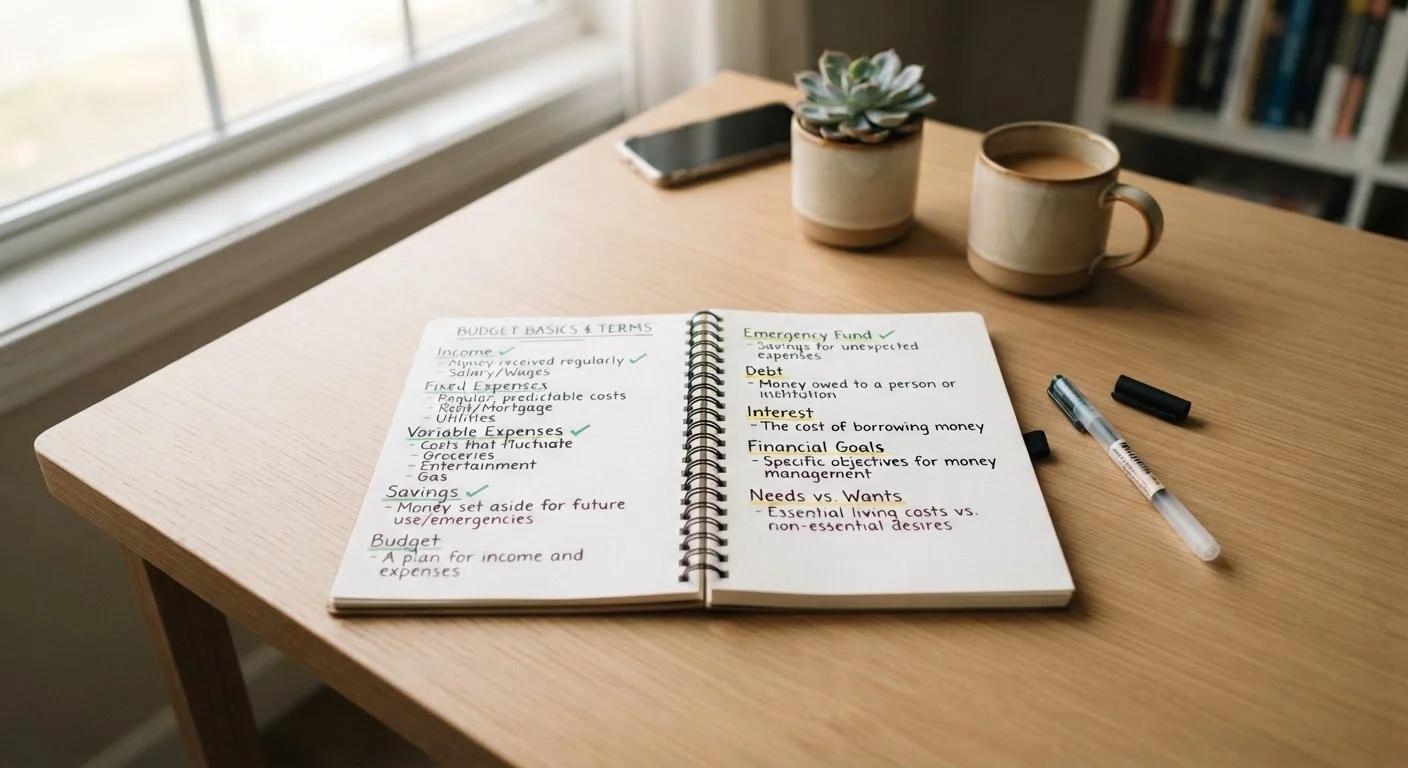 BUDGET BASICS & TERMS
Income ✓
- Money received regularly ✓
- Salary/Wages
Fixed Expenses
- Regular, predictable costs
- Rent/Mortgage
- Utilities
Variable Expenses ✓
- Costs that fluctuate
- Groceries
- Entertainment
- Gas
Savings ✓
- Money set aside for future
use/emergencies
Budget
- A plan for income and
expenses
Emergency Fund ✓
- Savings for unexpected
expenses
Debt
- Money owed to a person or
Interest
- The cost of borrowing money
Financial Goals
- Specific objectives for money
management
Needs vs. Wants
- Essential living costs vs.
non-essential desires